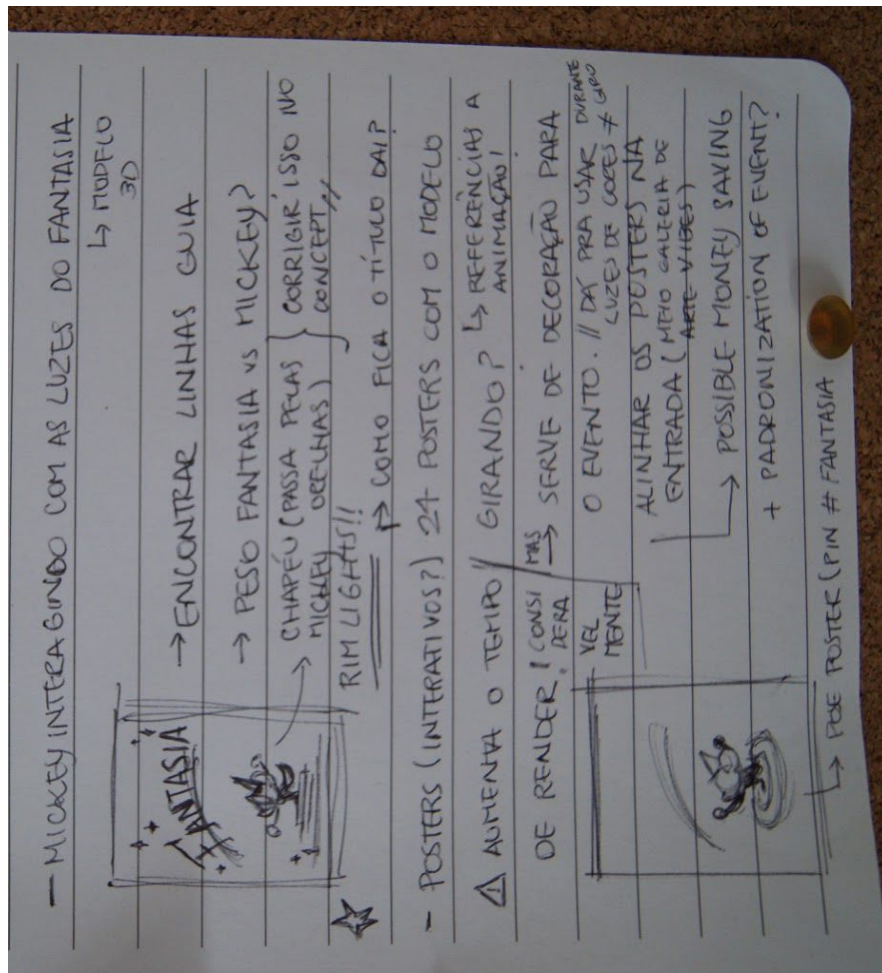 - MICKEY INTERAGINDO COM AS LUZES DO FANTASIA
↳ MODELO
3D
→ ENCONTRAR LINHAS GUIA
FANTASIA
→ PESO FANTASIA vs MICKEY?
→ CHAPÉU (PASSA PELAS
MICKEY ORELHAS) } CORRIGIR ISSO NO
CONCEPT //
RIM LIGHTS!!
↳ COMO FICA O TÍTULO DAÍ?
- POSTERS (INTERATIVOS?) 24 POSTERS COM O MODELO
GIRANDO? ↳ REFERÊNCIAS A
ANIMAÇÃO!
⚠ AUMENTA O TEMPO
DE RENDER! CONSI
DERA
VEL
MENTE
MAS
→ SERVE DE DECORAÇÃO PARA
O EVENTO. // DÁ PRA USAR DURANTE
LUZES DE CORES ≠ GIRO
ALINHAR OS POSTERS NA
ENTRADA (MEIO GALERIA DE
ARTE VIBES)
→ POSSIBLE MONEY SAVING
+ PADRONIZATION OF EVENT?
↳ POSE POSTER (PIN # FANTASIA